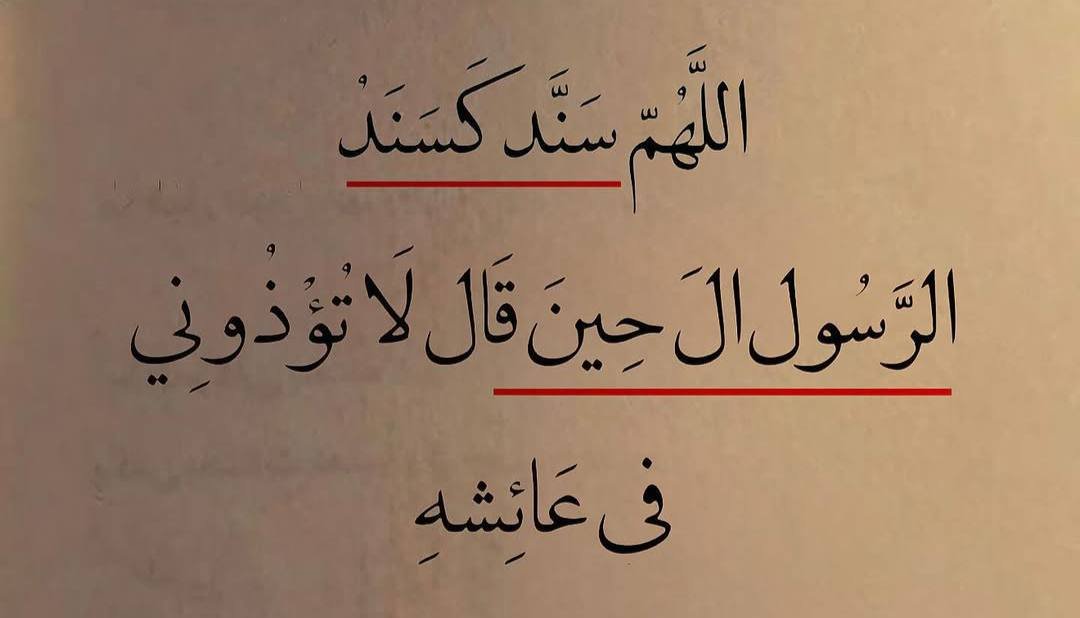 اللَّهُمّ سَنَّد كَسَنَدْ
الرَّسُول الَ حِينَ قَال لَا تُؤْذُوني
فى عَائِشهِ